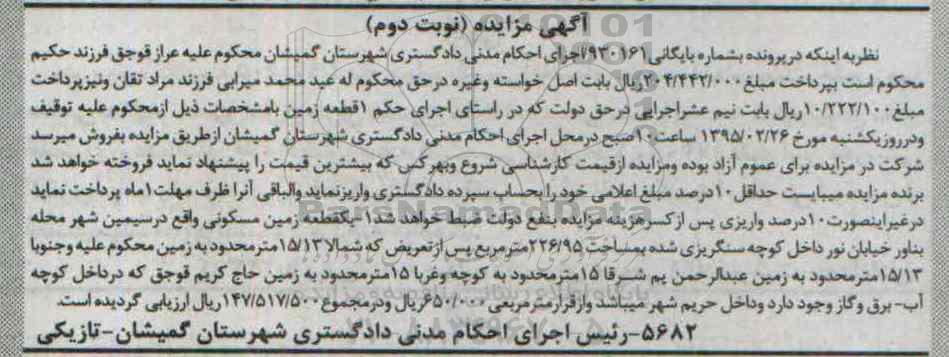 آگهی مزایده (نوبت دوم)
نظربه اینکه درپرونده بشماره بایگانی۹۳۰۱۶۱/اجرای احکام مدنی دادگستری شهرستان گمیشان محکوم علیه عراز قوجق فرزند حکیم
محکوم است بپرداخت مبلغ ۲۰۴/۴۴۲/۰۰۰ریال بابت اصل خواسته وغیره درحق محکوم له عید محمد میرابی فرزند مراد تقان ونیزپرداخت
مبلغ۱۰/۲۲۲/۱۰۰ریال بابت نیم عشراجرایی درحق دولت که در راستای اجرای حکم ۱قطعه زمین بامشخصات ذیل ازمحکوم علیه توقیف
ودرروزیکشنبه مورخ ۱۳۹۵/۰۲/۲۶ ساعت۱۰صبح درمحل اجرای احکام مدنی دادگستری شهرستان گمیشان ازطریق مزایده بفروش میرسد
شرکت در مزایده برای عموم آزاد بوده ومزایده ازقیمت کارشناسی شروع وبهرکس که بیشترین قیمت را پیشنهاد نماید فروخته خواهد شد
برنده مزایده میبایست حداقل ۱۰درصد مبلغ اعلامی خود را بحساب سپرده دادگستری واریزنماید والباقی آنرا ظرف مهلت۱ماه پرداخت نماید
درغیراینصورت۱۰درصد واریزی پس ازکسرهزینه مزایده بنفع دولت ضبط خواهد شد۱-یکقطعه زمین مسکونی واقع درسیمین شهر محله
بناور خیابان نور داخل کوچه سنگریزی شده بمساحت ۲۲۶/۹۵مترمربع پس ازتعریض که شمالا ۱۵/۱۳مترمحدود به زمین محکوم علیه وجنوبا
۱۵/۱۳مترمحدود به زمین عبدالرحمن یم شرقا ۱۵مترمحدود به کوچه وغربا ۱۵مترمحدود به زمین حاج کریم قوجق که درداخل کوچه
آب- برق وگاز وجود دارد وداخل حریم شهر میباشد وازقرارمترمربعی ۶۵۰/۰۰۰ریال ودرمجموع ۱۴۷/۵۱۷/۵۰۰ریال ارزیابی گردیده است.
۵۶۸۲-رئیس اجرای احکام مدنی دادگستری شهرستان گمیشان-تازیکی